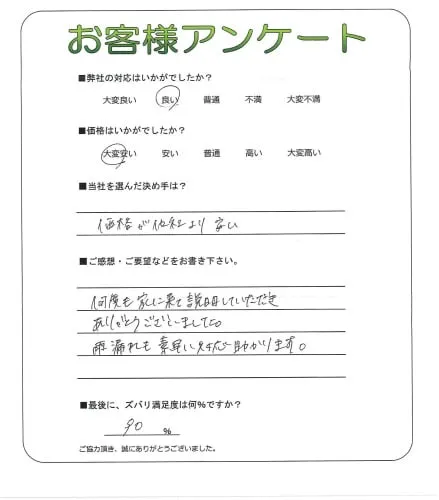 お客様アンケート
■弊社の対応はいかがでしたか？
大変良い 良い 普通 不満 大変不満
■価格はいかがでしたか？
大変安い 安い 普通 高い 大変高い
■当社を選んだ決め手は？
価格が他社より安い
■ご感想・ご要望などをお書き下さい。
何度も家に来て説明していただき
ありがとうございました。
雨漏れも素早い対応助かります。
■最後に、ズバリ満足度は何％ですか？
90 ％
ご協力頂き、誠にありがとうございました。